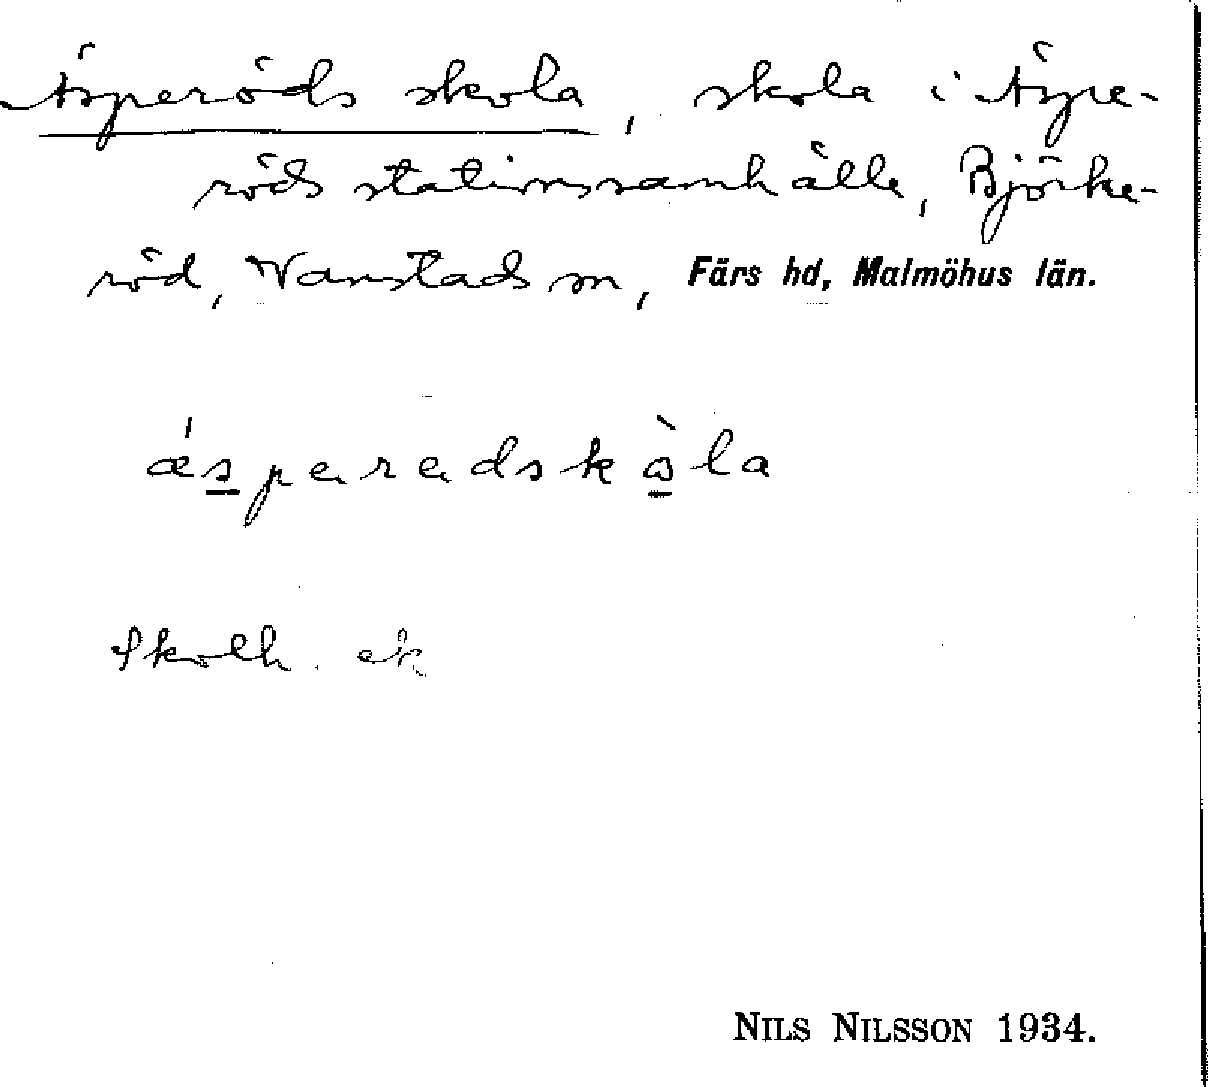 Äsperöds skola, skola i Äspe-
röds stationssamhälle, Björke-
röd, Vanstads sn, Färs hd, Malmöhus län.
ǽsparadskòla
Skolh. ek
NILS NILSSON 1934.